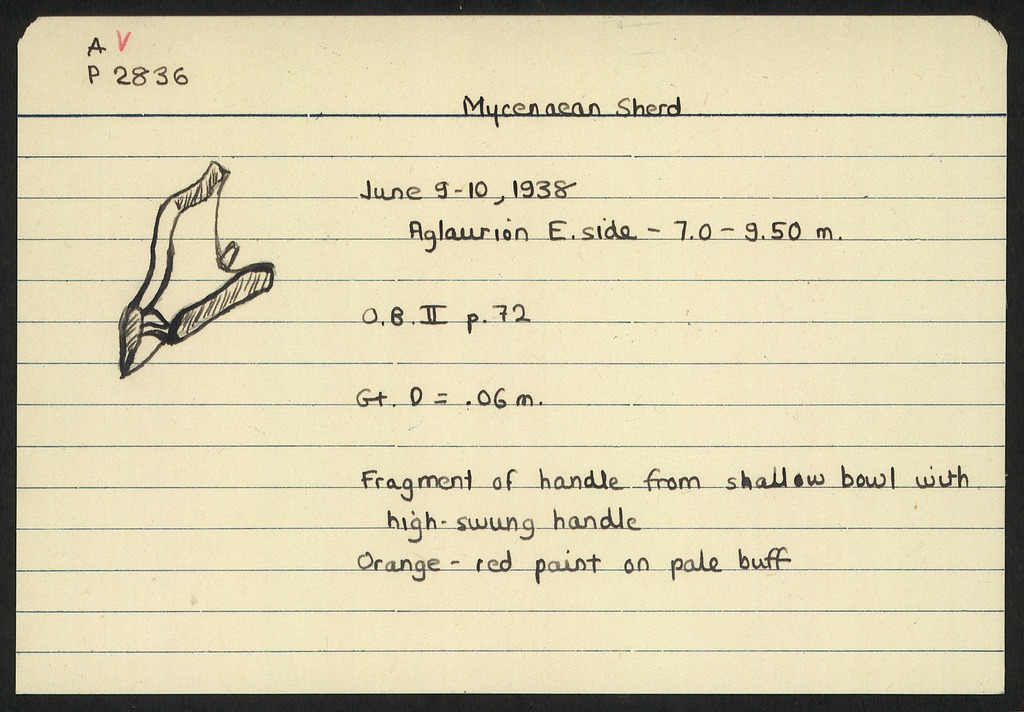 A V
P 2836
Mycenaean Sherd
June 9-10, 1938
Aglaurion E. side - 7.0 - 9.50 m.
O.B. II p. 72
Gt. D = .06 m.
Fragment of handle from shallow bowl with
high-swung handle
Orange-red paint on pale buff